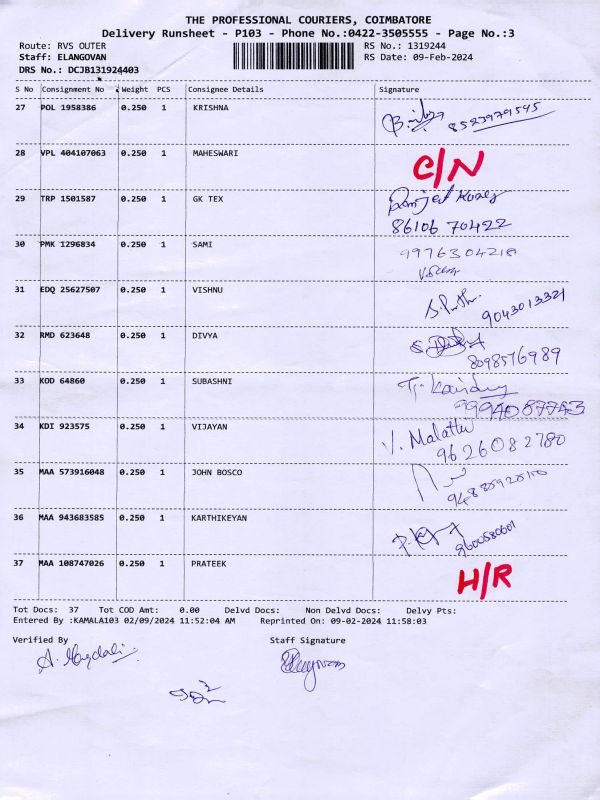 THE PROFESSIONAL COURIERS, COIMBATORE
Delivery Runsheet - P103 - Phone No.:0422-3505555 - Page No.:3
Route: RVS OUTER RS No.: 1319244
Staff: ELANGOVAN RS Date: 09-Feb-2024
DRS No.: DCJB131924403
S No Consignment No Weight PCS Consignee Details Signature
27 POL 1958386 0.250 1 KRISHNA
8523979545
28 VPL 404107063 0.250 1 MAHESWARI C/N
29 TRP 1501587 0.250 1 GK TEX
86106 70422
30 PMK 1296834 0.250 1 SAMI 9976304218
31 EDQ 25627507 0.250 1 VISHNU
9043013321
32 RMD 623648 0.250 1 DIVYA
8098576989
33 KOD 64860 0.250 1 SUBASHNI
9994087743
34 KDI 923575 0.250 1 VIJAYAN V.
9626082780
35 MAA 573916048 0.250 1 JOHN BOSCO
36 MAA 943683585 0.250 1 KARTHIKEYAN
9600580601
37 MAA 108747026 0.250 1 PRATEEK H/R
Tot Docs: 37 Tot COD Amt: 0.00 Delvd Docs: Non Delvd Docs: Delvy Pts:
Entered By :KAMALA103 02/09/2024 11:52:04 AM Reprinted On: 09-02-2024 11:58:03
Verified By Staff Signature